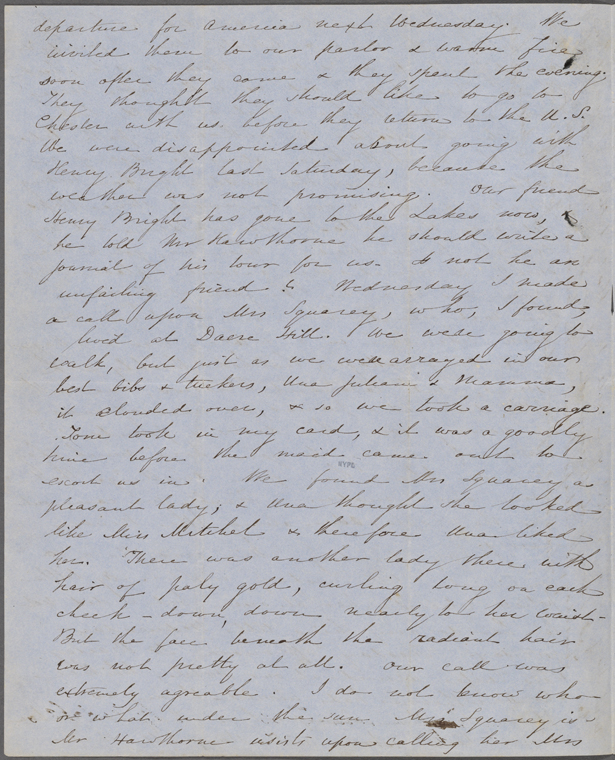 departure for America next Wednesday. We
invited them to our parlor & warm fire
soon after they came & they spent the evening.
They thought they should like to go to
Chester with us before they return to the U. S.
We were disappointed about going with
Henry Bright last Saturday, because the
weather was not promising. Our friend
Henry Bright has gone to the Lakes now, &
he told Mr Hawthorne he should write a
journal of his tour for us. Is not he an
unfailing friend? Wednesday I made
a call upon Mrs Squarey, who, I found,
lived at Dacre Hill. We were going to
walk, but just as we were arrayed in our
best bibs & tuckers, Una Julian & Mamma,
it clouded over, & so we took a carriage.
Tom took in my card, & it was a goodly
time before the maid came out to
NYPL
escort us in. We found Mrs Squarey a
pleasant lady; & Una thought she looked
like Miss Mitchel & therefore Una liked
her. There was another lady there with
hair of paly gold, curling long on each
cheek - down, down nearly to her waist -
But the face beneath the radiant hair
was not pretty at all. Our call was
extremely agreable. I do not know who
or what under the sun Mrs Squarey is
Mr Hawthorne insists upon calling her Mrs